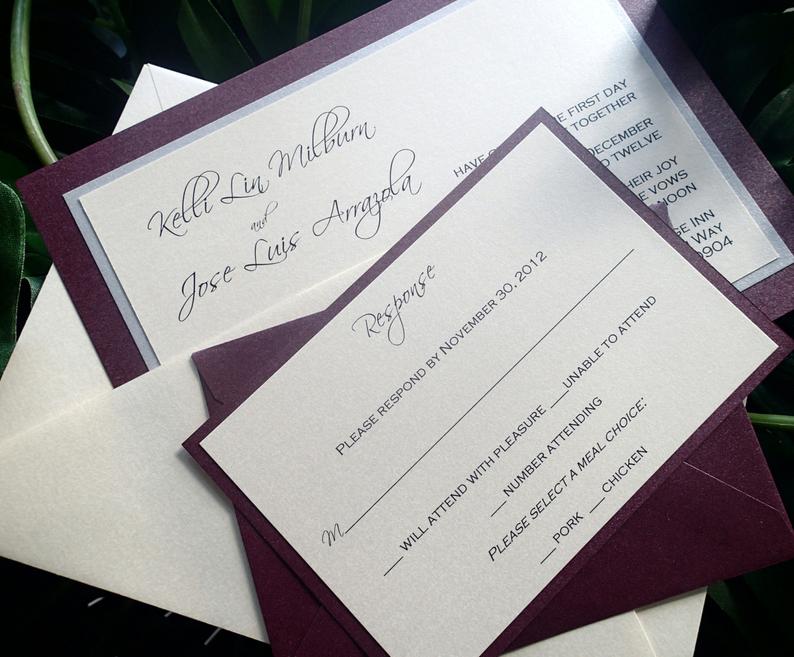 Kelli Lin Milburn
and
Jose Luis Arrazola
HAVE
FIRST DAY
TOGETHER
DECEMBER
TWELVE
THEIR JOY
VOWS
NOON
INN
WAY
Response
PLEASE RESPOND BY NOVEMBER 30, 2012
M
__ WILL ATTEND WITH PLEASURE __ UNABLE TO ATTEND
__ NUMBER ATTENDING
PLEASE SELECT A MEAL CHOICE:
__ PORK __ CHICKEN